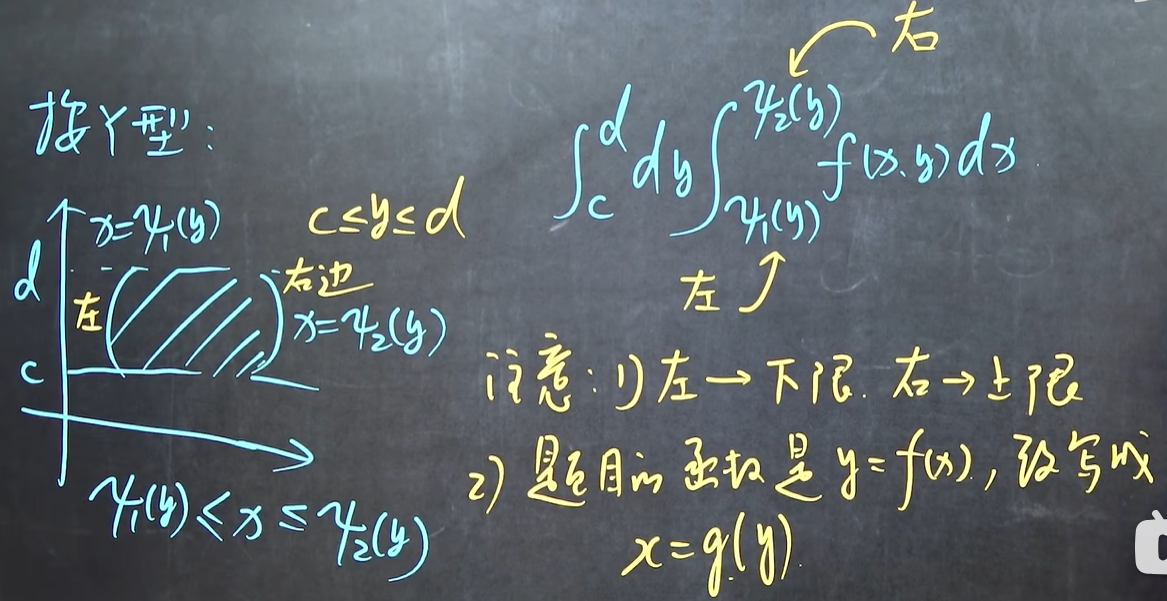 按Y型:
x=ψ₁(y)
c≤y≤d
d
左
右边
x=ψ₂(y)
c
ψ₁(y)≤x≤ψ₂(y)
右
∫_c^d dy ∫_{ψ₁(y)}^{ψ₂(y)} f(x,y)dx
左
注意:1)左→下限.右→上限
2)题目的函数是y=f(x),改写成
x=g(y)